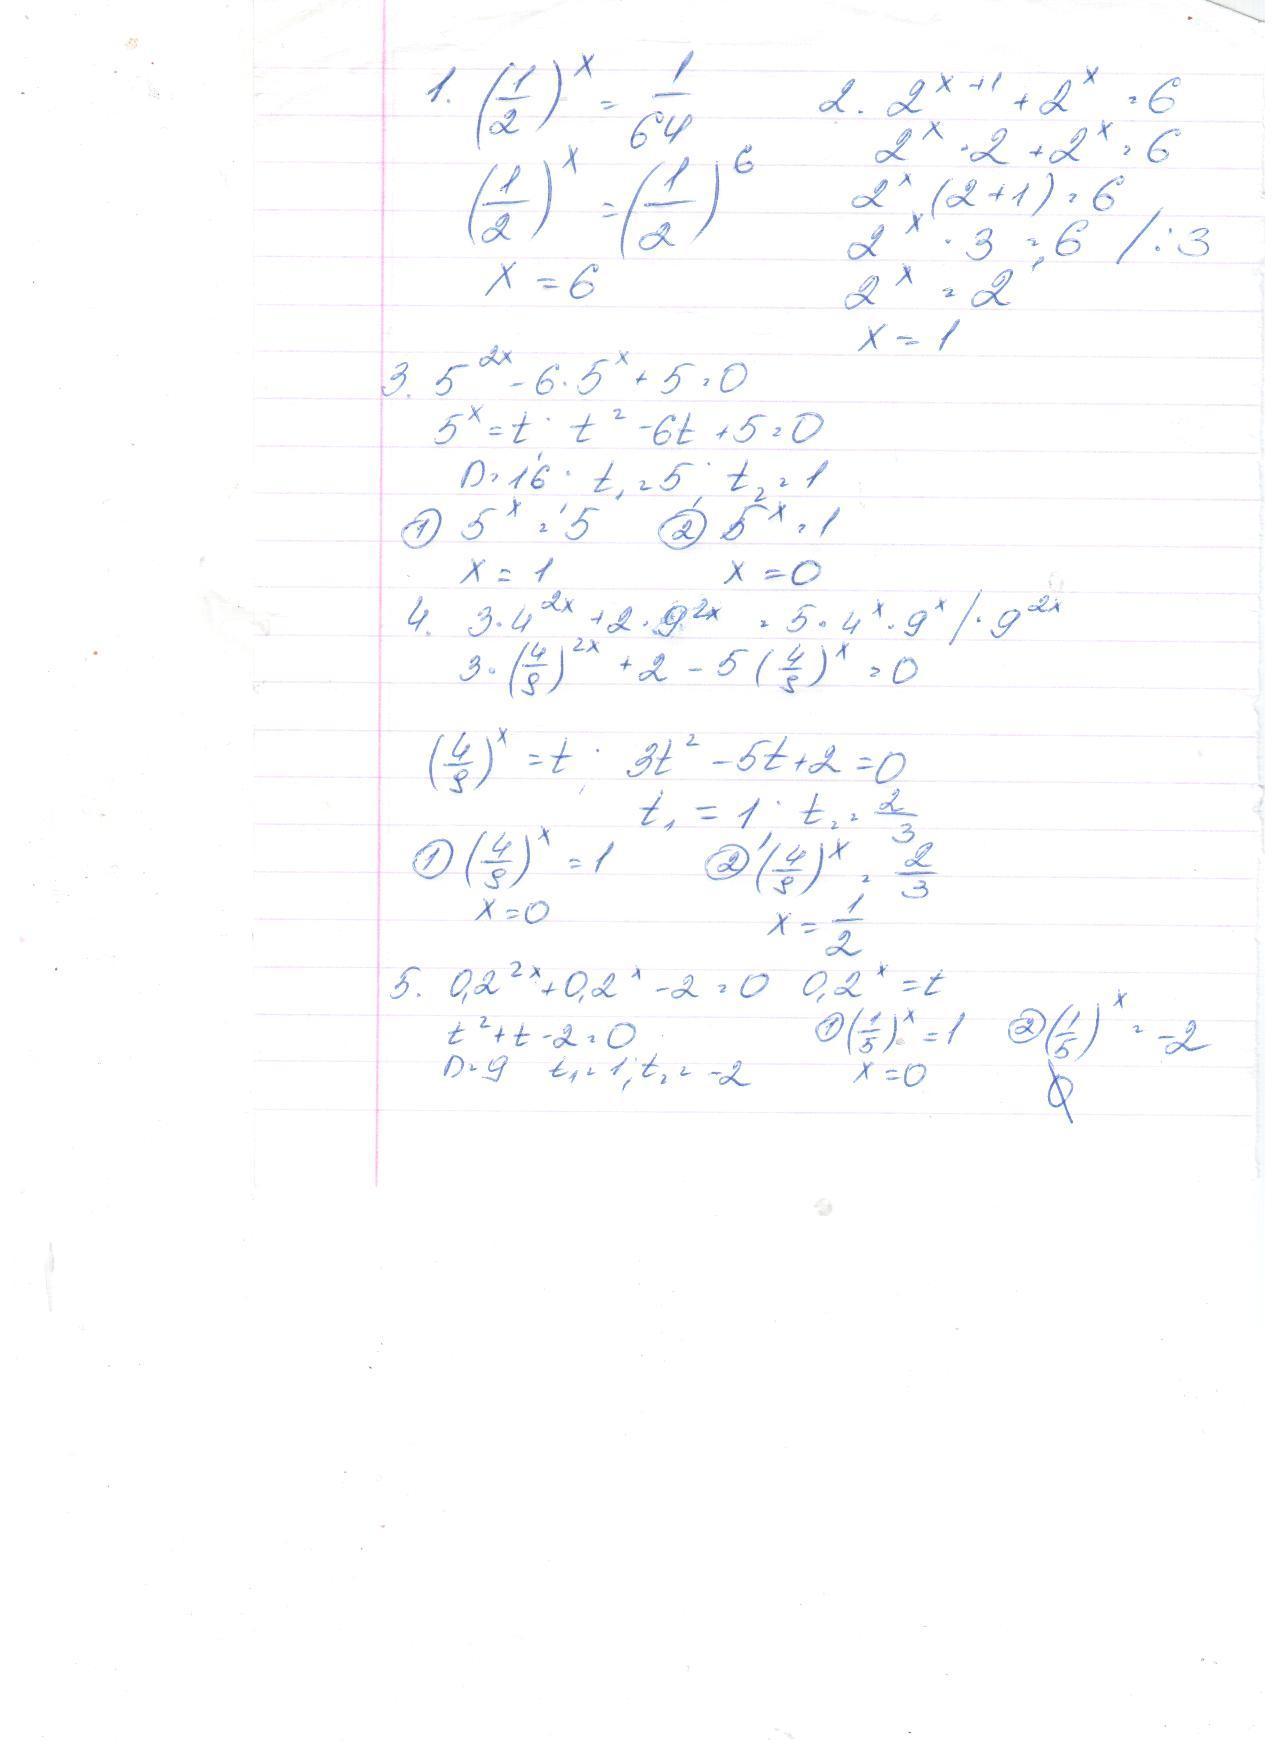 1. (1/2)^x = 1/64
(1/2)^x = (1/2)^6
x = 6
2. 2^(x+1) + 2^x = 6
2^x · 2 + 2^x = 6
2^x (2+1) = 6
2^x · 3 = 6 / : 3
2^x = 2^1
x = 1
3. 5^(2x) - 6 · 5^x + 5 = 0
5^x = t; t^2 - 6t + 5 = 0
D = 16; t₁ = 5; t₂ = 1
① 5^x = 5 ② 5^x = 1
x = 1 x = 0
4. 3 · 4^(2x) + 2 · 9^(2x) = 5 · 4^x · 9^x / : 9^(2x)
3 · (4/9)^(2x) + 2 - 5 (4/9)^x = 0
(4/9)^x = t; 3t^2 - 5t + 2 = 0
t₁ = 1; t₂ = 2/3
① (4/9)^x = 1 ② (4/9)^x = 2/3
x = 0 x = 1/2
5. 0,2^(2x) + 0,2^x - 2 = 0 0,2^x = t
t^2 + t - 2 = 0 ① (1/5)^x = 1 ② (1/5)^x = -2
D = 9 t₁ = 1; t₂ = -2 x = 0 ∅